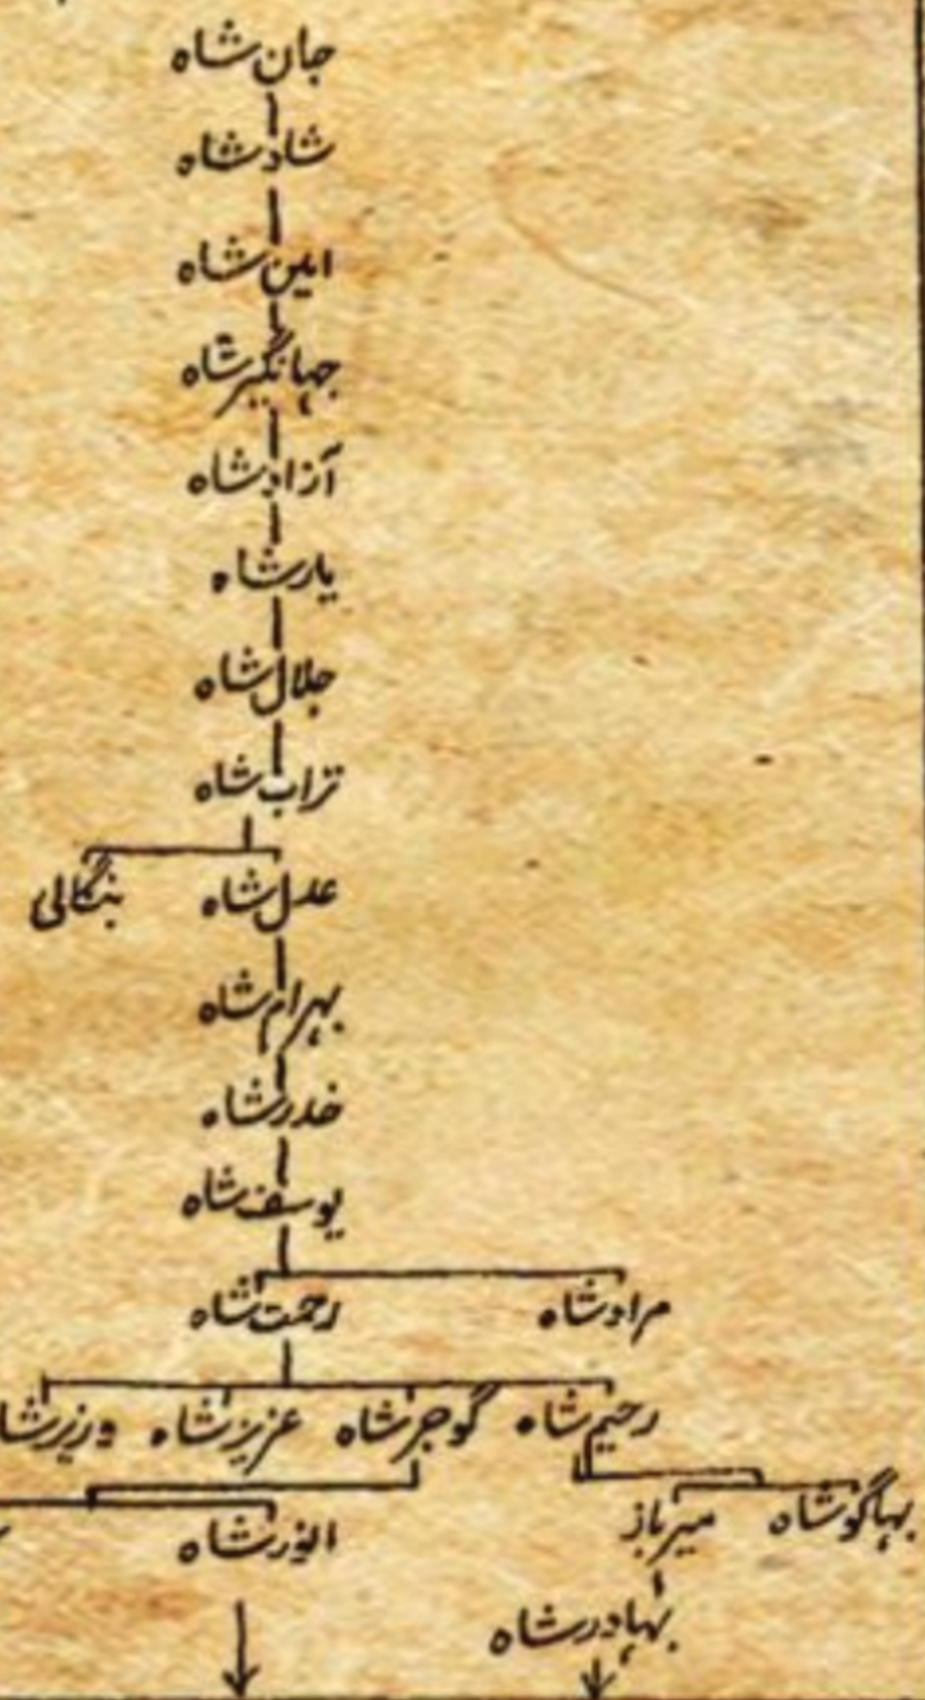 جان شاہ
شاد شاہ
امین شاہ
جہانگیر شاہ
آزاد شاہ
یار شاہ
جلال شاہ
تراب شاہ
عدل شاہ بنگالی
بہرام شاہ
خدر شاہ
یوسف شاہ
مراد شاہ رحمت شاہ
رحیم شاہ گوجر شاہ عزیز شاہ وزیر شا
بہاگو شاہ میر باز انور شاہ
بہادر شاہ